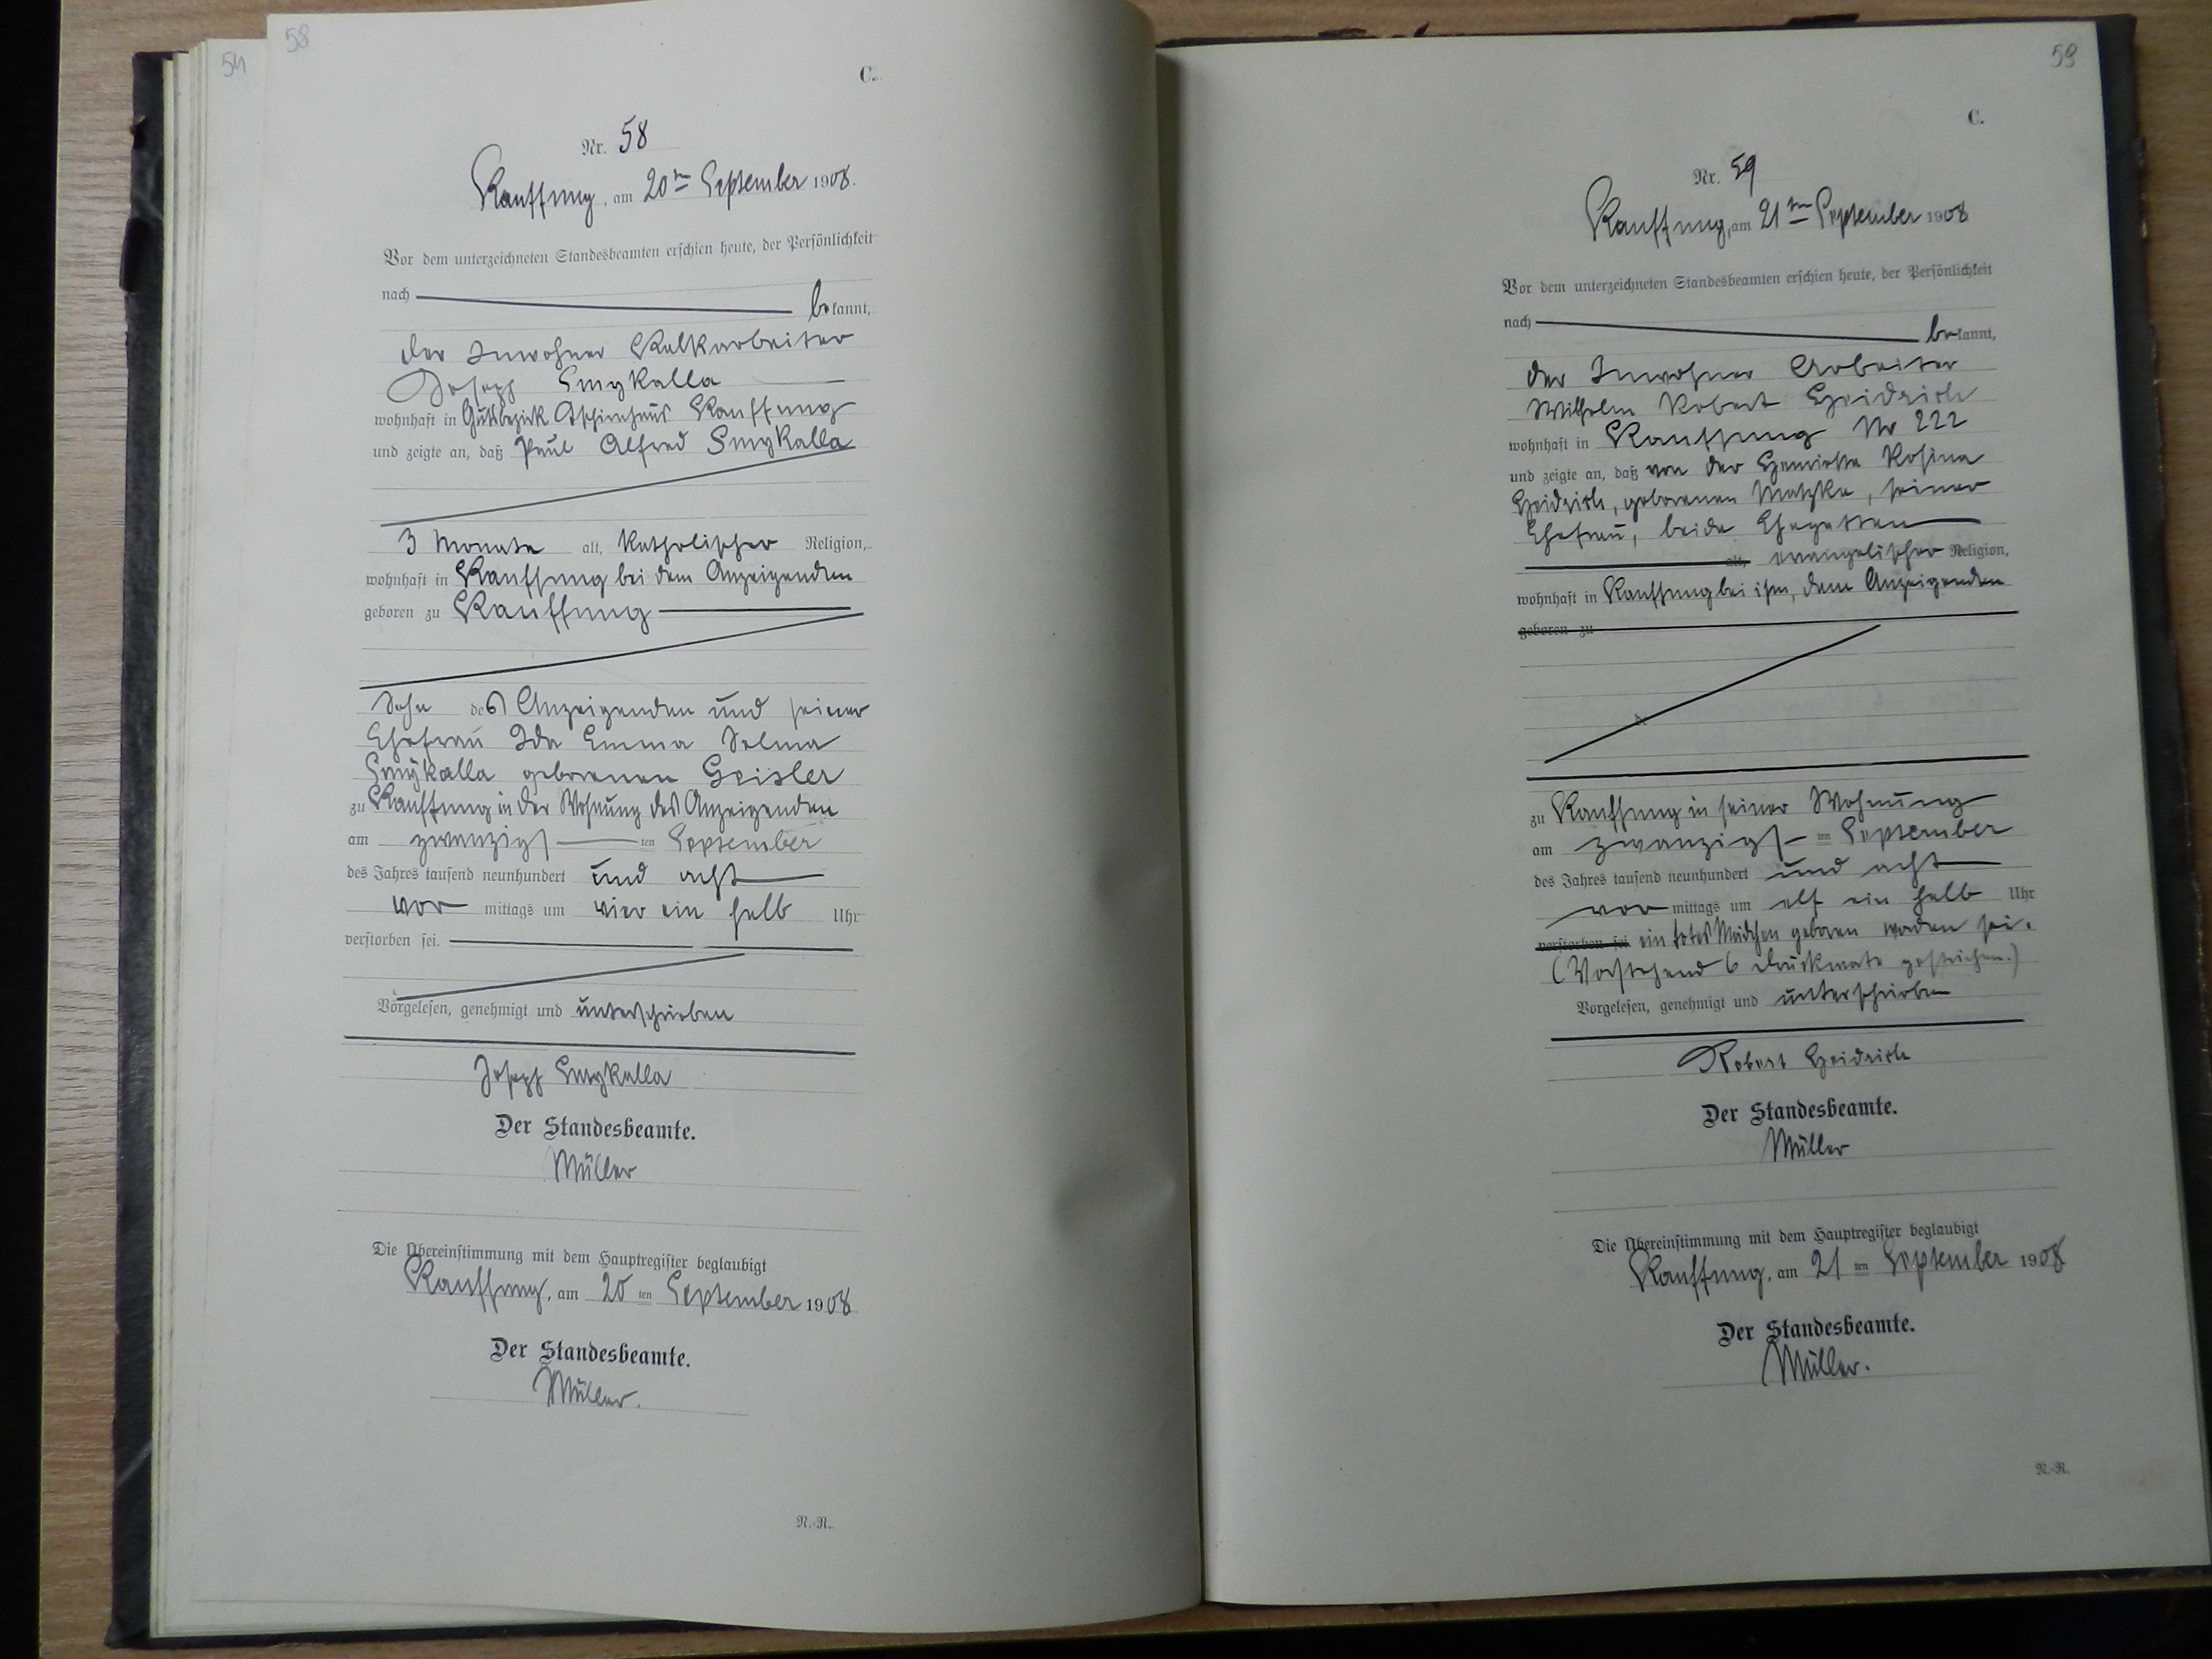 54
58
C.
Nr. 58
Kauffung, am 20ten September 1908.
Vor dem unterzeichneten Standesbeamten erschien heute, der Persönlichkeit
nach bekannt,
der Inwohner Kalkarbeiter
Joseph Smykalla
wohnhaft in Gutsbezirk Kauffung
und zeigte an, daß Paul Alfred Smykalla
3 Monate alt, katholischer Religion,
wohnhaft in Kauffung bei dem Anzeigenden
geboren zu Kauffung
Sohn des Anzeigenden und seiner
Ehefrau Ida Emma Selma
Smykalla geborenen Geisler
zu Kauffung in der Wohnung des Anzeigenden
am zwanzigsten September
des Jahres tausend neunhundert und acht
vormittags um vier ein halb Uhr
verstorben sei.
Vorgelesen, genehmigt und unterschrieben
Joseph Smykalla
Der Standesbeamte.
Müller
Die Übereinstimmung mit dem Hauptregister beglaubigt
Kauffung, am 20ten September 1908
Der Standesbeamte.
Müller.
N.-R.
59
C.
Nr. 59
Kauffung, am 21ten September 1908
Vor dem unterzeichneten Standesbeamten erschien heute, der Persönlichkeit
nach bekannt,
der Inwohner Arbeiter
Wilhelm Robert Heidrich
wohnhaft in Kauffung Nr 222
und zeigte an, daß von der Henriette Rosina
Heidrich, geborenen Matzke, seiner
Ehefrau, beide Ehegatten
alt, evangelischer Religion,
wohnhaft in Kauffung bei ihm, dem Anzeigenden
geboren zu
de
zu Kauffung in seiner Wohnung
am zwanzigsten September
des Jahres tausend neunhundert und acht
vormittags um elf ein halb Uhr
verstorben sei ein totes Mädchen geboren worden sei.
(Vorstehend 6 Druckworte gestrichen.)
Vorgelesen, genehmigt und unterschrieben
Robert Heidrich
Der Standesbeamte.
Müller
Die Übereinstimmung mit dem Hauptregister beglaubigt
Kauffung, am 21ten September 1908
Der Standesbeamte.
Müller.
N.-R.